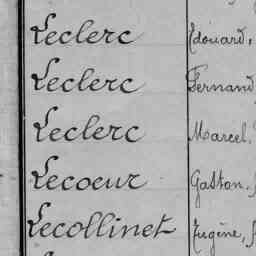 Leclerc Edouard,
Leclerc Fernand
Leclerc Marcel,
Lecoeur Gaston,
Lecollinet Eugène,